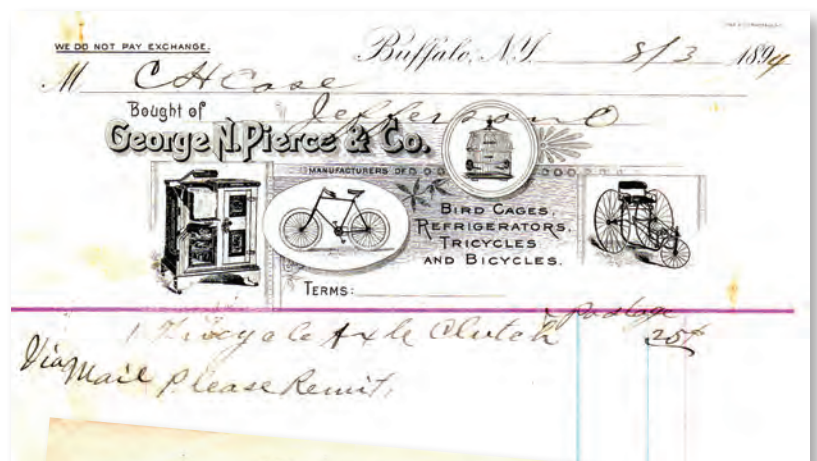 WE DO NOT PAY EXCHANGE.
Buffalo, N.Y. 8/3 1894
M C H Case
Jefferson O
Bought of
George N. Pierce & Co.
MANUFACTURERS OF
BIRD CAGES,
REFRIGERATORS,
TRICYCLES
AND BICYCLES.
TERMS:
1 Tricycle Axle Clutch & Postage 25¢
Via Mail Please Remit.